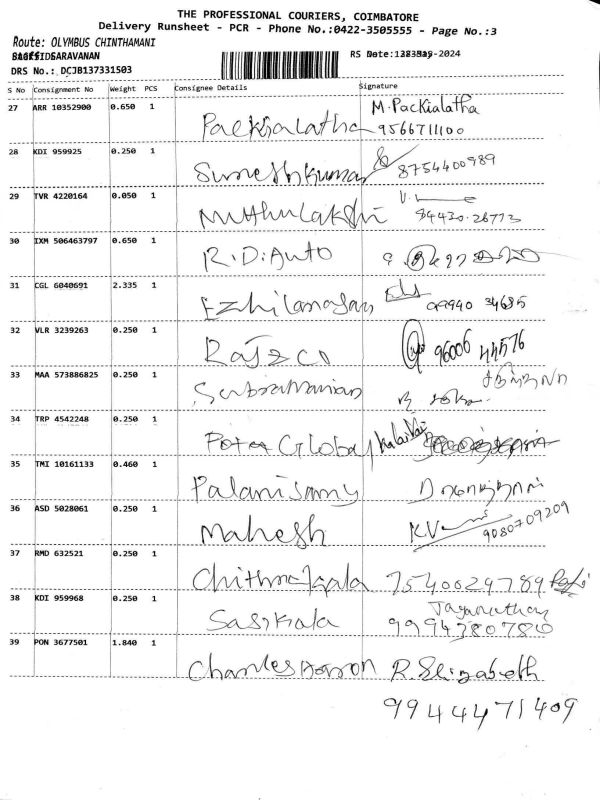 THE PROFESSIONAL COURIERS, COIMBATORE
Delivery Runsheet - PCR - Phone No.:0422-3505555 - Page No.:3
Route: OLYMBUS CHINTHAMANI
SARAVANAN RS Date: 2024
DRS No.: DCJB137331503
S No Consignment No Weight PCS Consignee Details Signature
27 ARR 10352900 0.650 1 Packialatha M.Packialatha
9566711100
28 KDI 959925 0.250 1 Sureshkumar 8754400989
29 TVR 4220164 0.050 1 Muthulakshi V.
94430.26773
30 IXM 506463797 0.650 1 R.D.Auto
31 CGL 6040691 2.335 1 Ezhilarasan 09940 34685
32 VLR 3239263 0.250 1 Rajzco 96006 44576
33 MAA 573886825 0.250 1 Subramanian
34 TRP 4542248 0.250 1 Global
35 TMI 10161133 0.460 1 Palanisamy
36 ASD 5028061 0.250 1 Mahesh KV
9080709209
37 RMD 632521 0.250 1 7540029789
38 KDI 959968 0.250 1 Sasikala Jaganathan
9994380780
39 PON 3677501 1.840 1 R. Elizabeth
9944471409